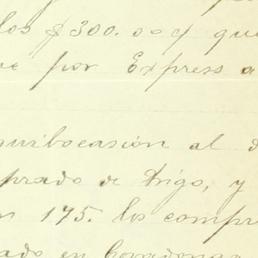 los $300.00 y que
por Express a
quibocasion al
prado de trigo, y
175. los compr
ado en